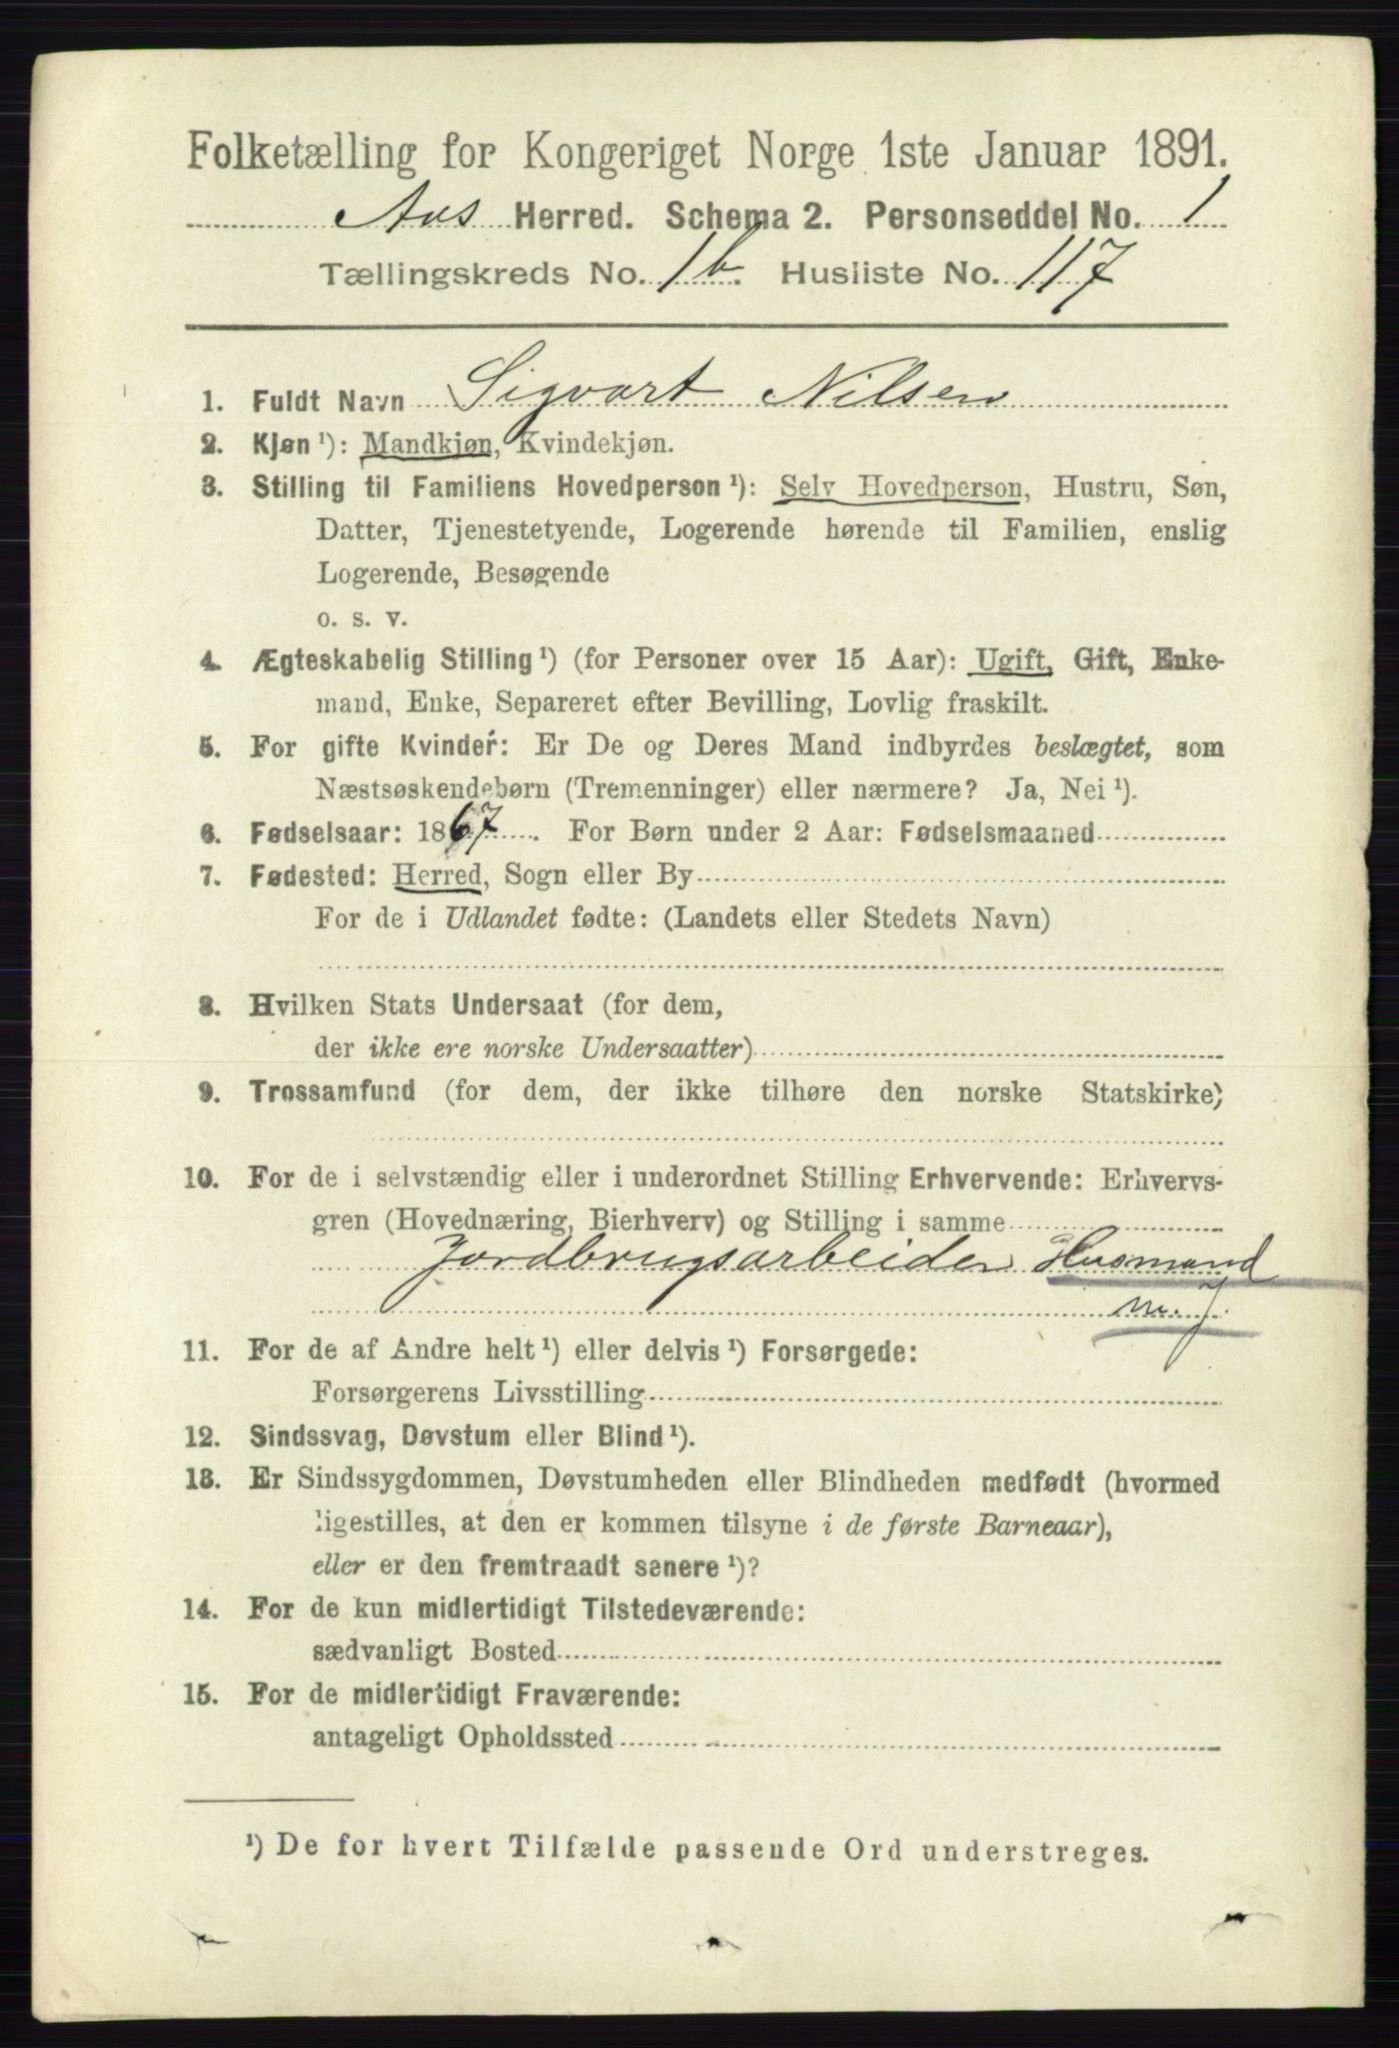 Folketælling for Kongeriget Norge 1ste Januar 1891.
Aas Herred. Schema 2. Personseddel No. 1
Tællingskreds No. 1b. Husliste No. 117
1. Fuldt Navn Sigvart Nilsen
2. Kjøn ¹): Mandkjøn, Kvindekjøn.
3. Stilling til Familiens Hovedperson ¹): Selv Hovedperson, Hustru, Søn,
Datter, Tjenestetyende, Logerende hørende til Familien, enslig
Logerende, Besøgende
o. s. v.
4. Ægteskabelig Stilling ¹) (for Personer over 15 Aar): Ugift, Gift, Enke-
mand, Enke, Separeret efter Bevilling, Lovlig fraskilt.
5. For gifte Kvinder: Er De og Deres Mand indbyrdes beslægtet, som
Næstsøskendebørn (Tremenninger) eller nærmere? Ja, Nei ¹).
6. Fødselsaar: 1867. For Børn under 2 Aar: Fødselsmaaned
7. Fødested: Herred, Sogn eller By
For de i Udlandet fødte: (Landets eller Stedets Navn)
8. Hvilken Stats Undersaat (for dem,
der ikke ere norske Undersaatter)
9. Trossamfund (for dem, der ikke tilhøre den norske Statskirke)
10. For de i selvstændig eller i underordnet Stilling Erhvervende: Erhvervs-
gren (Hovednæring, Bierhverv) og Stilling i samme
Jordbrugsarbeider Husmand
m. J.
11. For de af Andre helt ¹) eller delvis ¹) Forsørgede:
Forsørgerens Livsstilling
12. Sindssvag, Døvstum eller Blind ¹).
13. Er Sindssygdommen, Døvstumheden eller Blindheden medfødt (hvormed
ligestilles, at den er kommen tilsyne i de første Barneaar),
eller er den fremtraadt senere ¹)?
14. For de kun midlertidigt Tilstedeværende:
sædvanligt Bosted
15. For de midlertidigt Fraværende:
antageligt Opholdssted
¹) De for hvert Tilfælde passende Ord understreges.